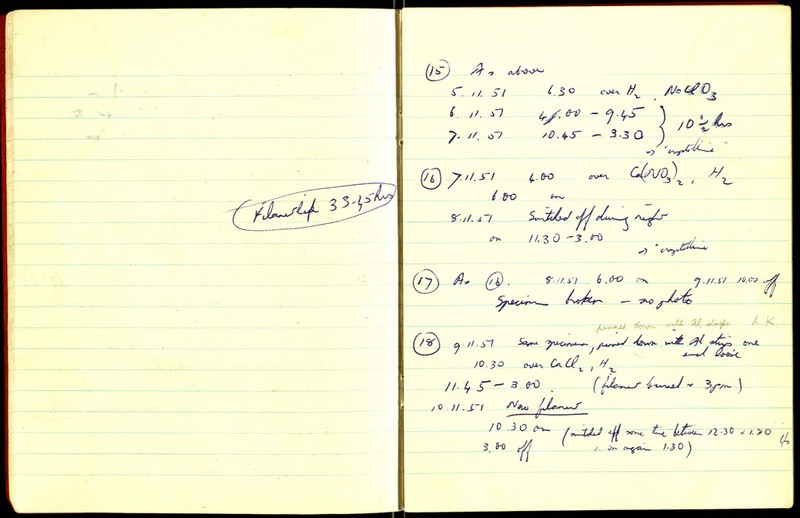 Filament life 33-45 hrs
(15) As above
5.11.51 6.30 over H2, NaClO3
6.11.51 4.00 - 9.45
7.11.51 10.45 - 3.30 } 10 1/2 hrs
→ "crystalline"
(16) 7.11.51 4.00 over Ca(NO3)2, H2
6.00 on
8.11.51 Switched off during night
on 11.30 - 3.00
→ "crystalline"
(17) As (16). 8.11.51 6.00 on 9.11.51 10.00 off
Specimen broken - no photo
pinned down with Al strips A.K
(18) 9.11.51 Same specimen, pinned down with Al strips, one
end loose
10.30 over CaCl2, H2
11.45 - 3.00. (filament burned ~ 3pm)
10.11.51 New filament
10.30 on (switched off some time between 12.30 & 1.30
3.00 off on again 1.30)